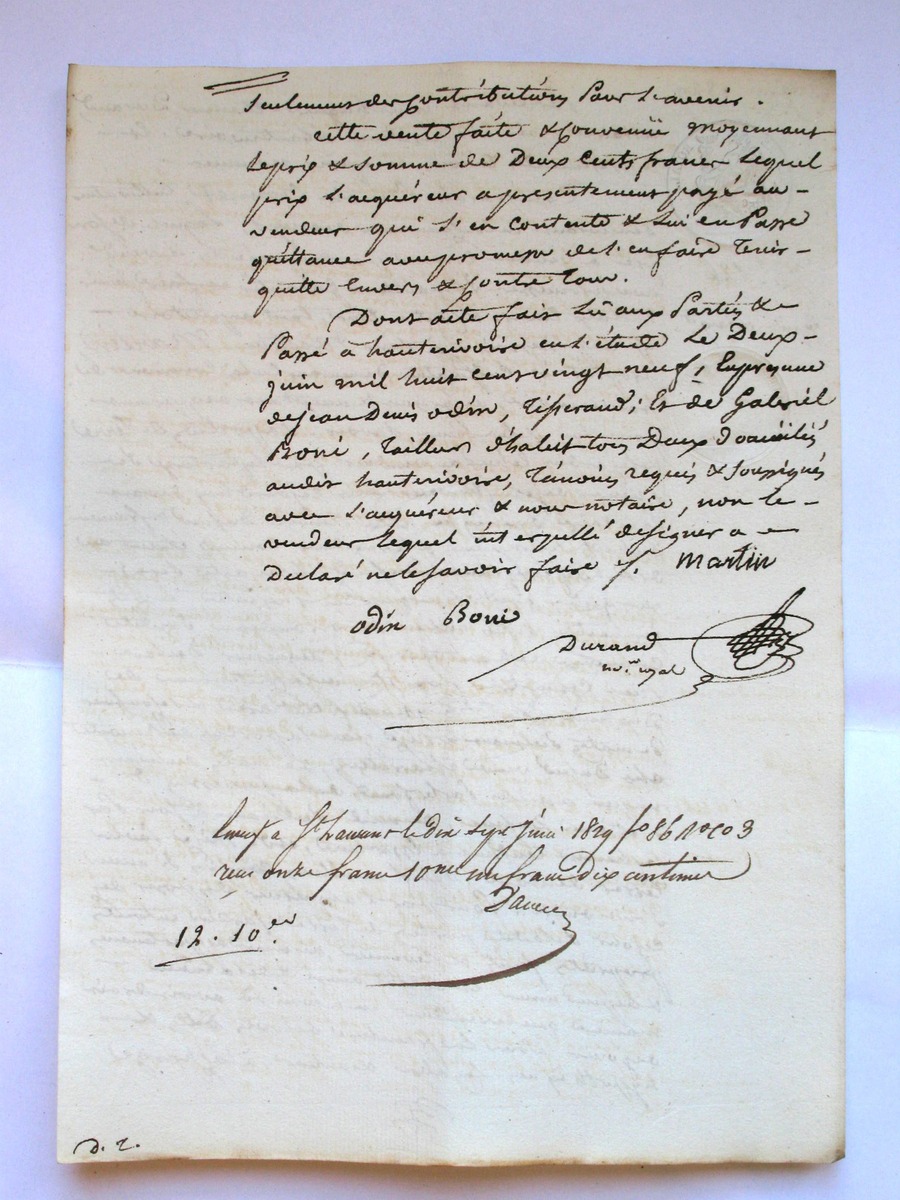 seulement des contributions pour l'avenir.
cette vente faite & convenüe moyennant
le prix & somme de Deux cents francs lequel
prix l'acquéreur a presentement payé au
vendeur qui s'en contente & lui en Passe
quittance avec promesse de l'en faire tenir
quitte Envers & contre tous.
Dont acte fait Lû aux Parties &
Passé à hauterivoire en l'étude Le Deux
juin mil huit cent vingt neuf, En presence
de jean Denis odin, Tisserand; Et de Gabriel
Boni, Tailleur d'habit tous Deux domiciliés
audit hauterivoire, témoins requis & soussignés
avec l'acquéreur & nous notaire, non le
vendeur lequel interpellé de signer a
Declaré ne le savoir faire ∫. Martin
odin Boni
Durand
no.re royal
a St Laurent le dix sept juin 1829 fo 86 Ro co 3
reçu onze francs 10me un franc dix centimes
12. 10 es
D. 2.